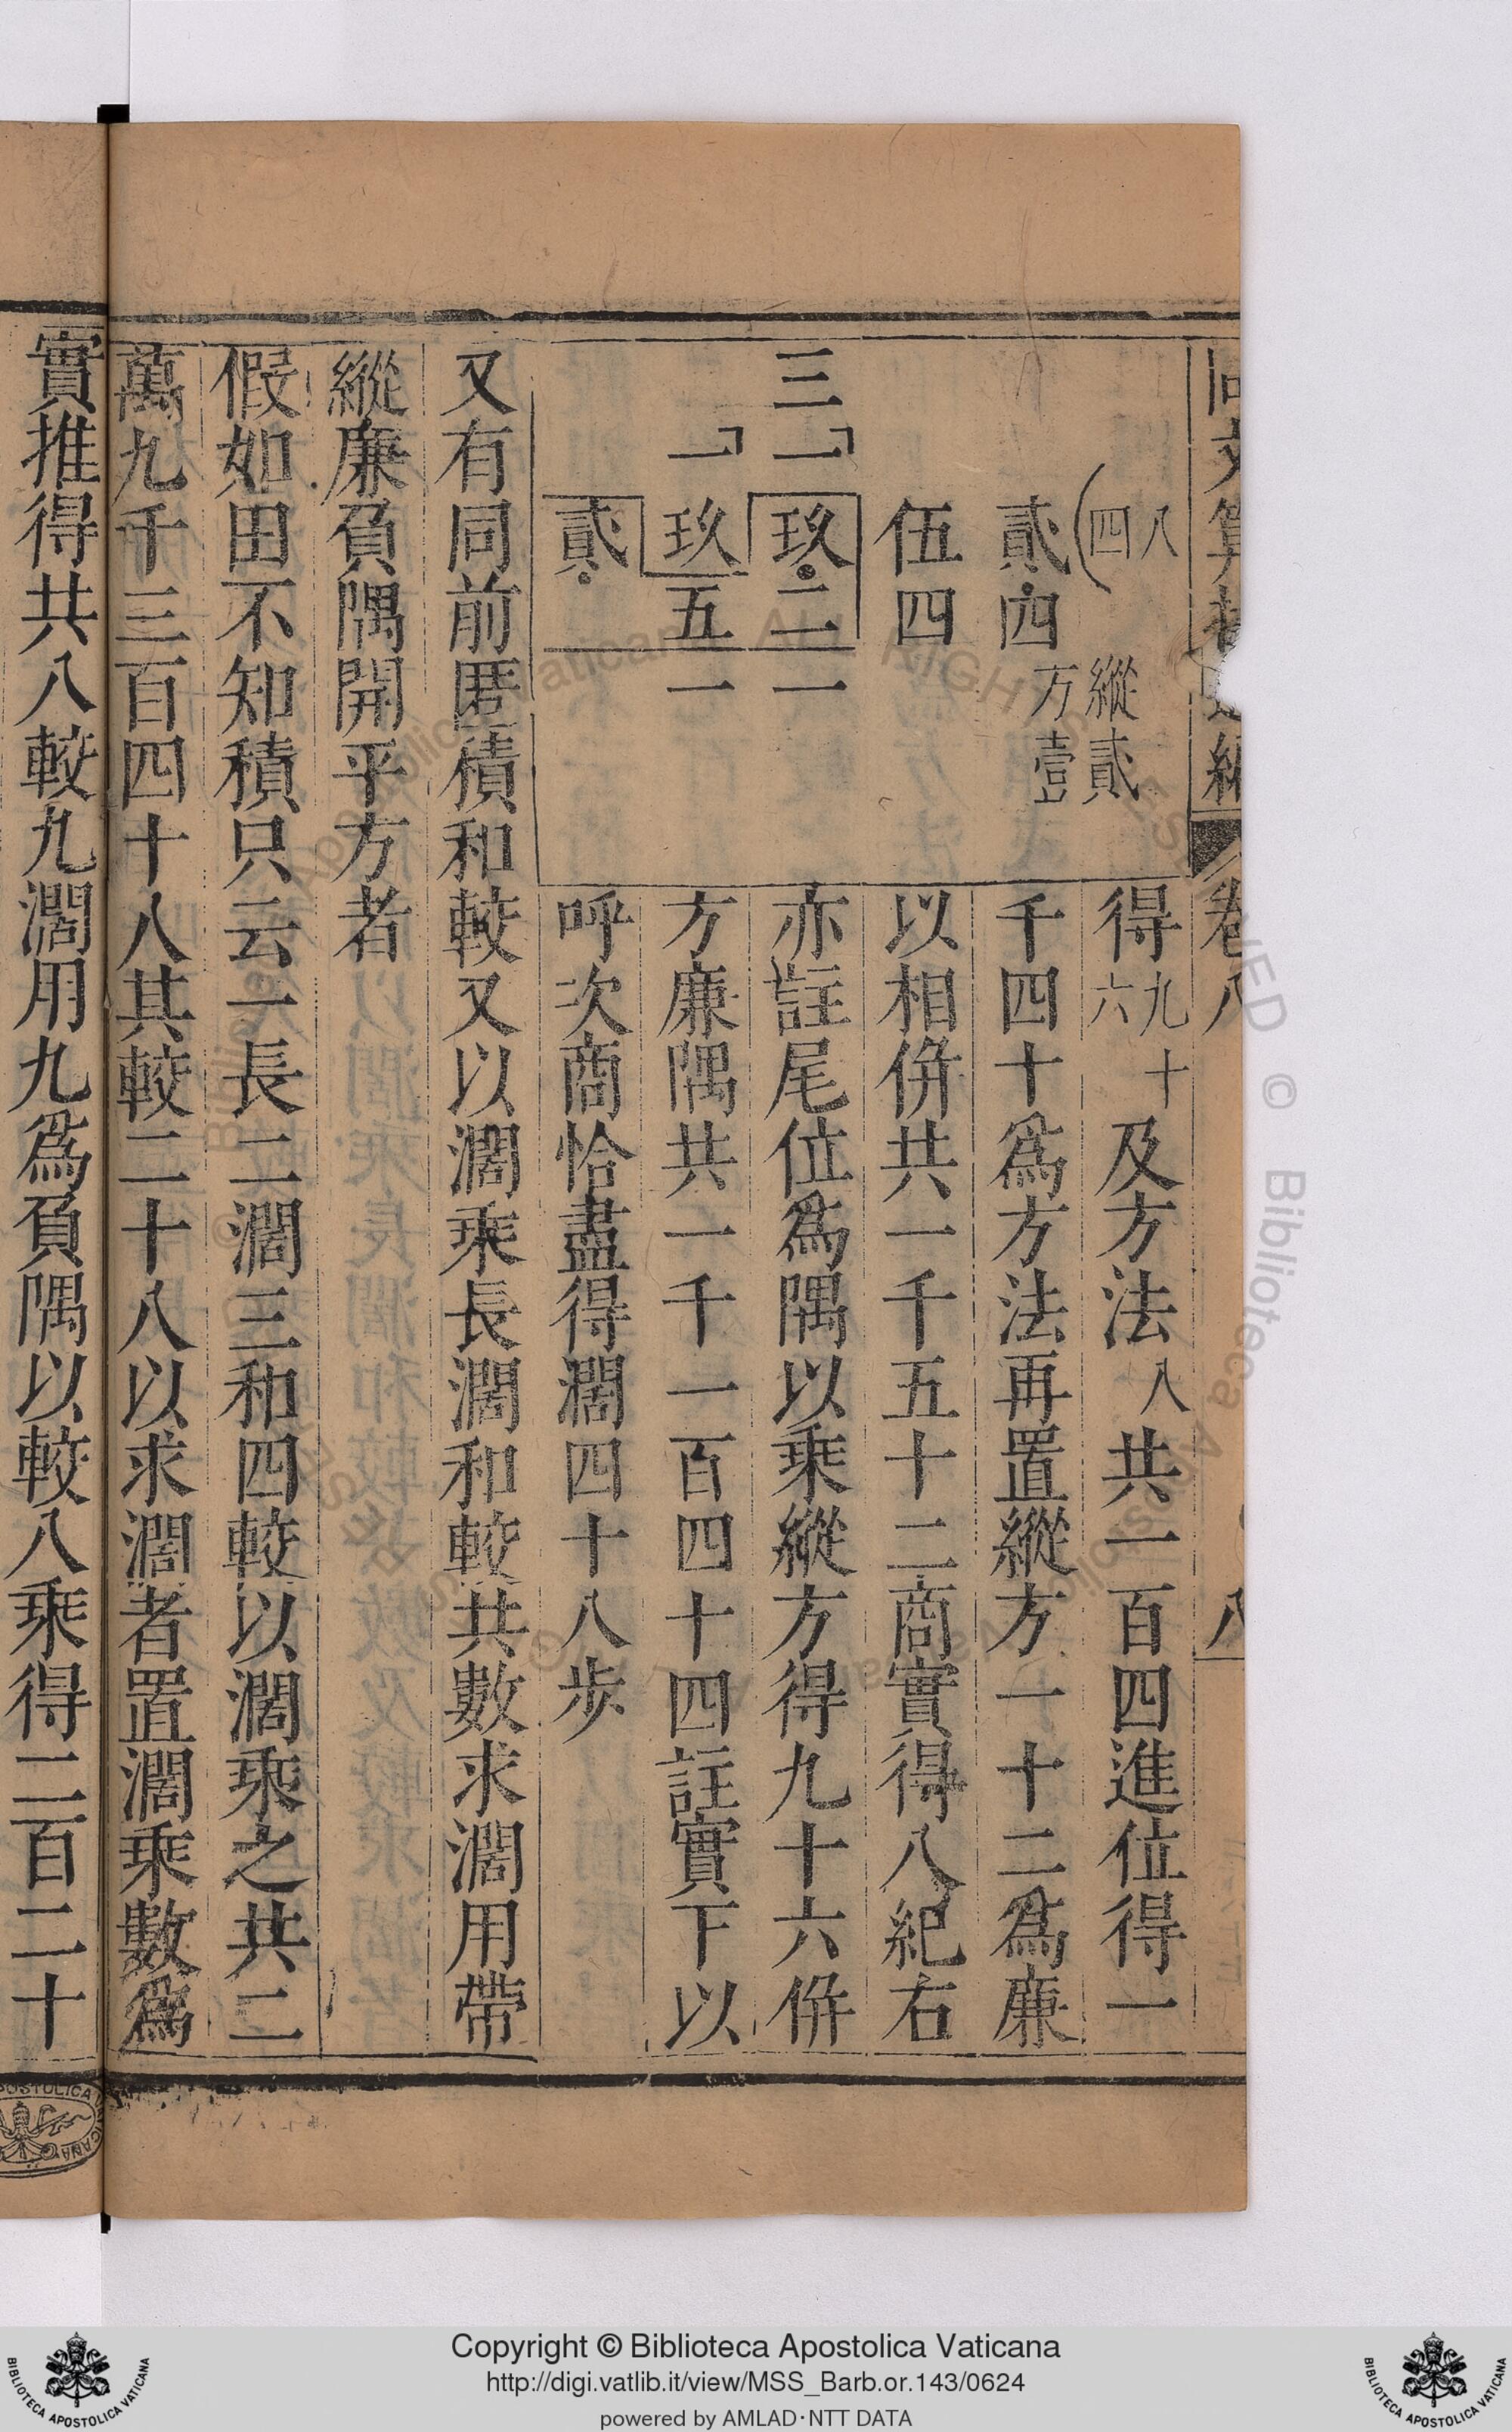 同文算指通編 卷八 八
八
四
縱貳
方壹
貳四
伍四
三一玖二一
一玖五一
貳
得九十六及方法八共一百四進位得一
千四十爲方法再置縱方一十二爲廉
以相併共一千五十二商實得八紀右
亦註尾位爲隅以乘縱方得九十六併
方廉隅共一千一百四十四註實下以
呼次商恰盡得濶四十八步
又有同前匿積和較又以濶乘長濶和較共數求濶用帶
縱廉負隅開平方者
假如田不知積只云一長二濶三和四較以濶乘之共二
萬九千三百四十八其較二十八以求濶者置濶乘數爲
實推得共八較九濶用九爲負隅以較八乘得二百二十
Copyright © Biblioteca Apostolica Vaticana
http://digi.vatlib.it/view/MSS_Barb.or.143/0624
powered by AMLAD·NTT DATA
BIBLIOTECA APOSTOLICA VATICANA
BIBLIOTECA APOSTOLICA VATICANA